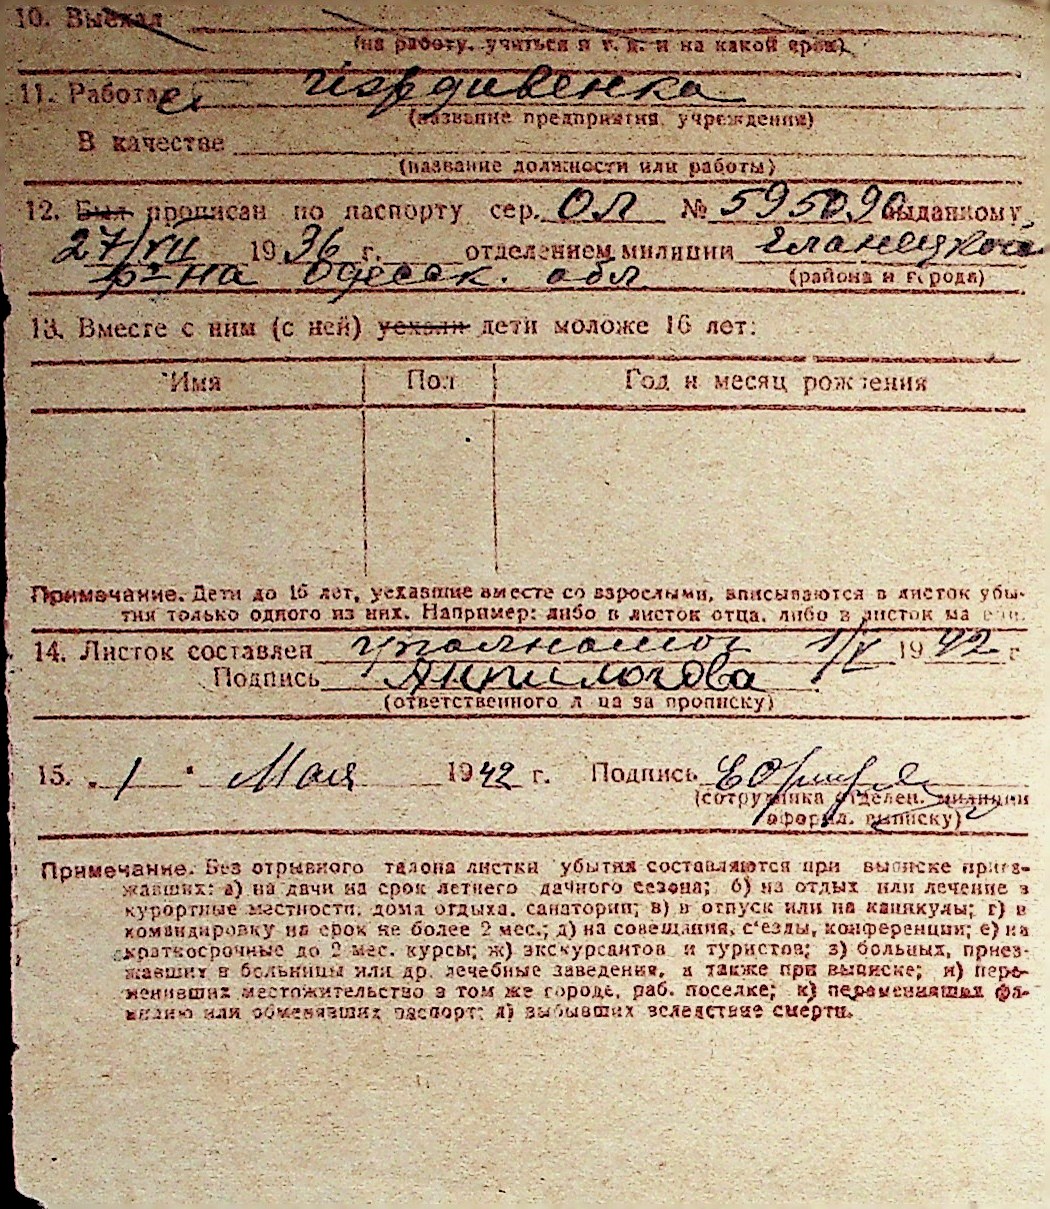 10. Выехал
(на работу, учиться и т. д. и на какой срок)
11. Работает иждивенка
(название предприятия, учреждения)
В качестве
(название должности или работы)
12. Был прописан по паспорту сер. ОЛ № 595090 выданному
27/VII 1936 г. отделением милиции
р-на Одесск. обл (района и города)
13. Вместе с ним (с ней) уехали дети моложе 16 лет:
Имя Пол Год и месяц рождения
Примечание. Дети до 16 лет, уехавшие вместе со взрослыми, вписываются в листок убы-
тия только одного из них. Например: либо в листок отца, либо в листок матери.
14. Листок составлен 1/V 1942 г
Подпись Анпилогова
(ответственного лица за прописку)
15. „1" Мая 1942 г. Подпись
(сотрудника отделен. милиции
оформ. выписку)
Примечание. Без отрывного талона листки убытия составляются при выписке приез-
жавших: а) на дачи на срок летнего дачного сезона; б) на отдых или лечение в
курортные местности, дома отдыха, санатории; в) в отпуск или на каникулы; г) в
командировку на срок не более 2 мес.; д) на совещания, с'езды, конференции; е) на
краткосрочные до 2 мес. курсы; ж) экскурсантов и туристов; з) больных, приез-
жавших в больницы или др. лечебные заведения, а также при выписке; и) пере-
менивших местожительство в том же городе, раб. поселке; к) переменивших фа-
милию или обменявших паспорт; л) выбывших вследствие смерти.